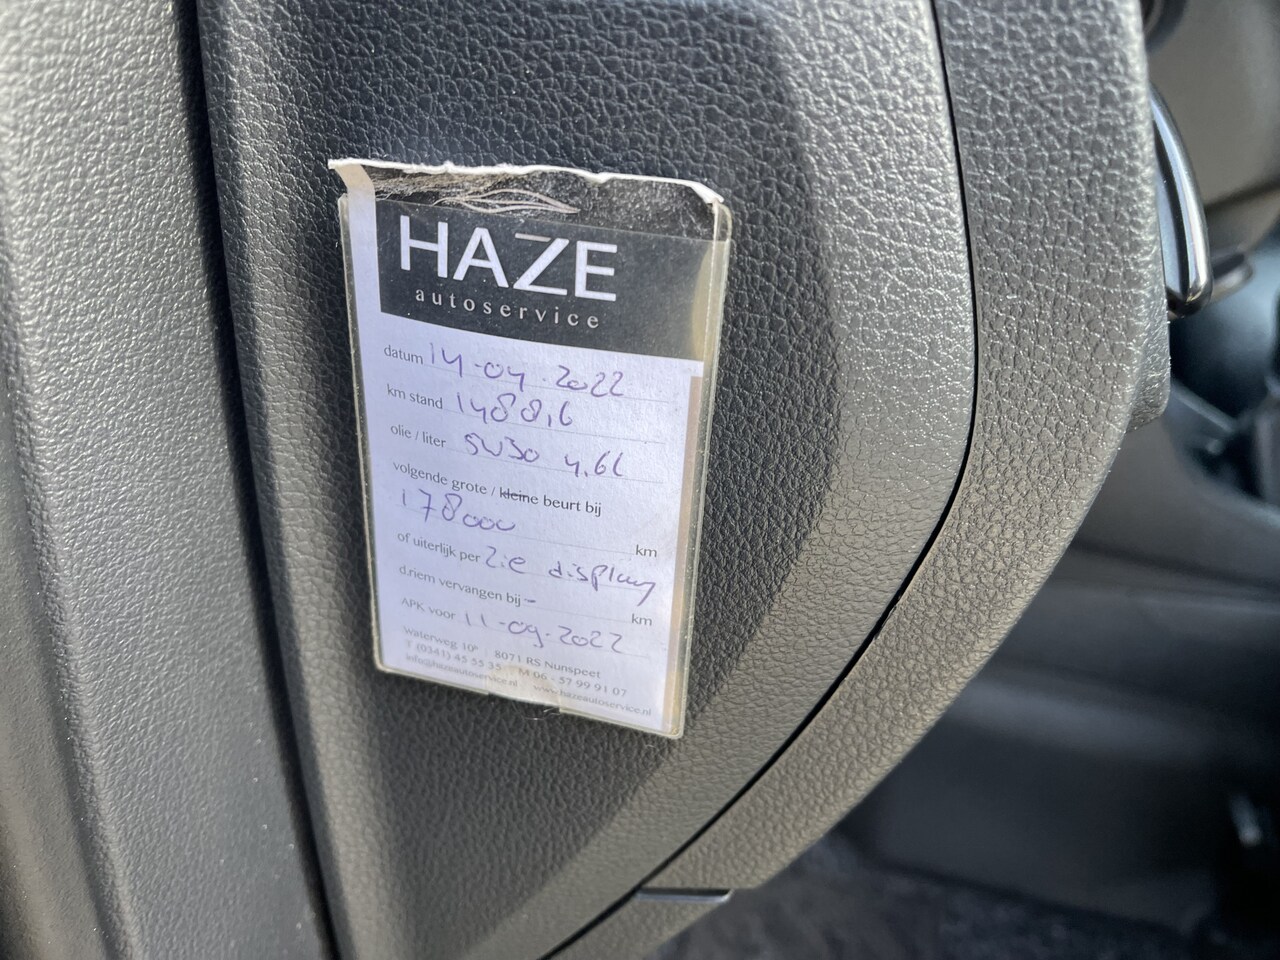 HAZE
autoservice
datum 14-04-2022
km stand 14886
olie / liter 5W30 4.6L
volgende grote / kleine beurt bij
178000 km
of uiterlijk per Zie display
d.riem vervangen bij - km
APK voor 11-09-2022
Waterweg 10ᵇ | 8071 RS Nunspeet
T (0341) 45 55 35 M 06 - 57 99 91 07
info@hazeautoservice.nl www.hazeautoservice.nl